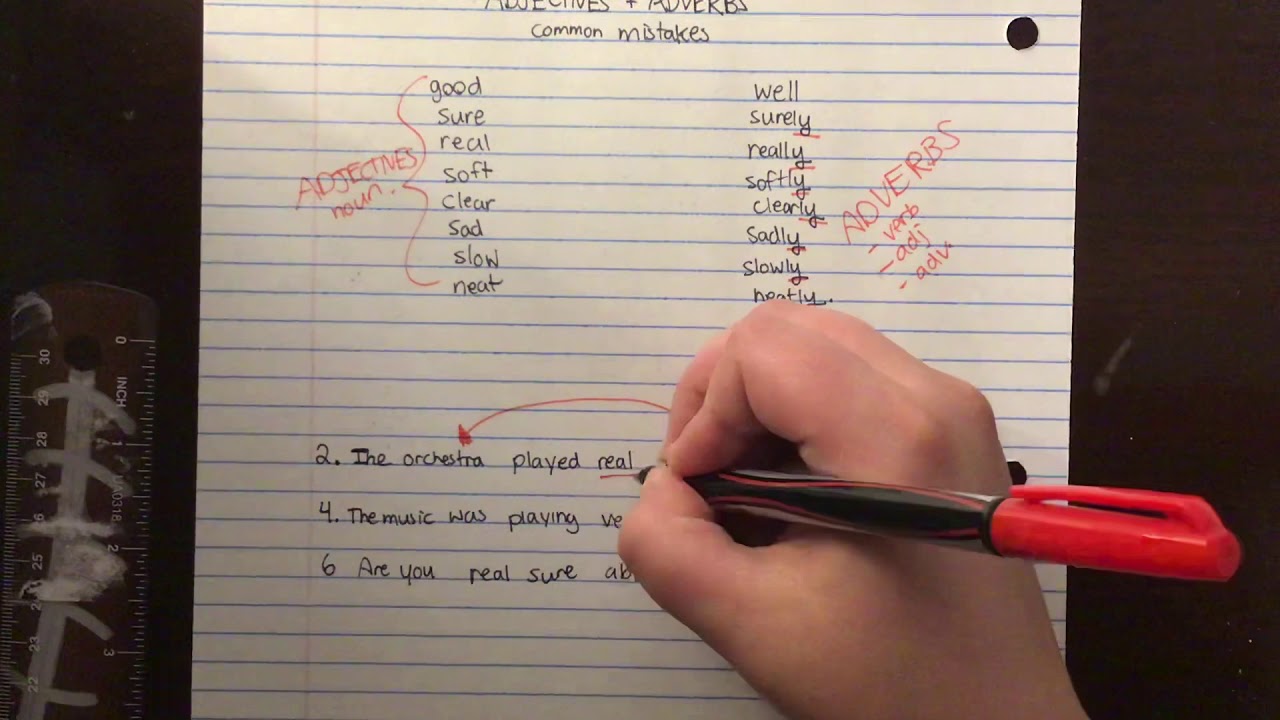 ADJECTIVES + ADVERBS
common mistakes
good well
sure surely
real really
soft softly
clear clearly
sad sadly
slow slowly
neat neatly.
ADJECTIVES
noun.
ADVERBS
- verb
- adj
- adv.
2. The orchestra played real
4. The music was playing ve
6 Are you real sure ab
0 INCH 1 2 3
30 29 28 27 26 25 24 23 22